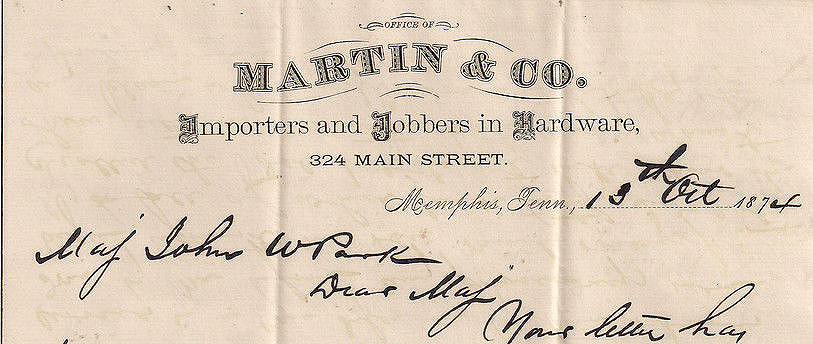 OFFICE OF
MARTIN & CO.
Importers and Jobbers in Hardware,
324 MAIN STREET.
Memphis, Tenn., 13th Oct 1874
Maj John W Park
Dear Maj
Your letter has